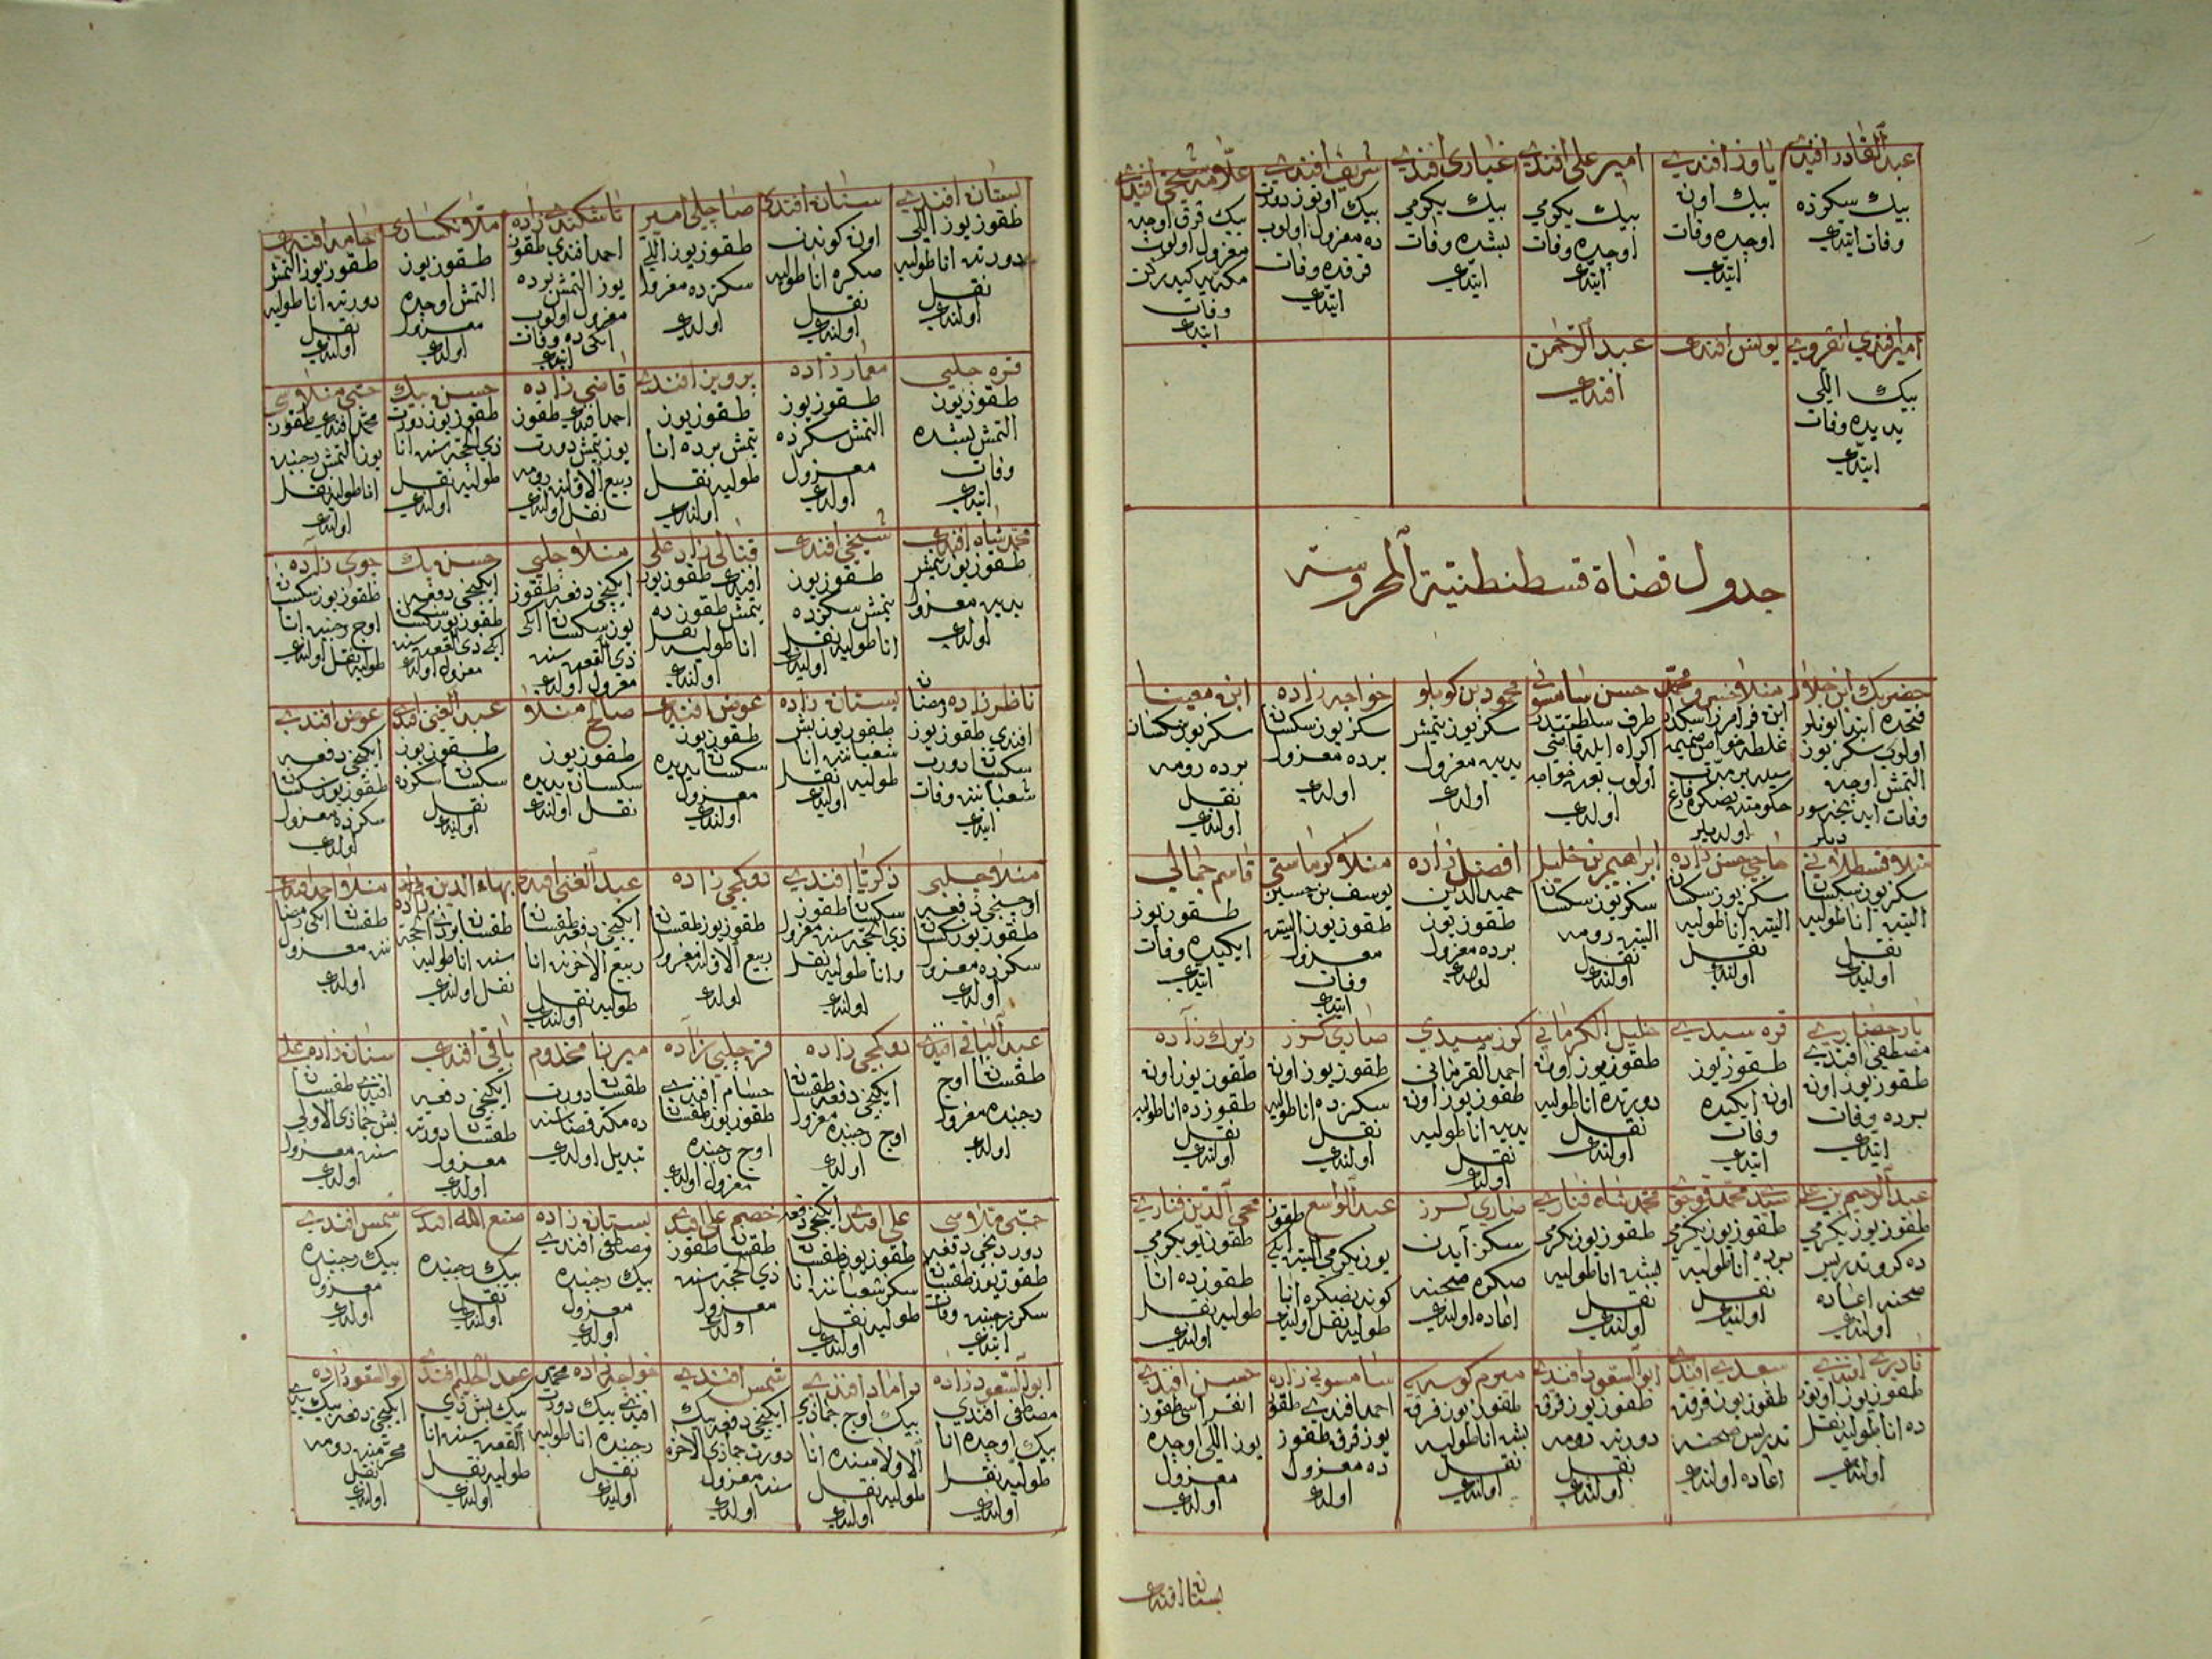 عبد القادر افندی
بیك سکزده
وفات ایتدی
یاوز افندی
بیك اون
اوچده وفات
ایتدی
امیر علی افندی
بیك یکرمی
اوچده وفات
ایتدی
غباری افندی
بیك یکرمی
بشده وفات
ایتدی
شریف افندی
بیك اوتوز دورت
ده معزول اولوب
قرقده وفات
ایتدی
علامه شیخی افندی
بیك قرق اوچده
معزول اولوب
مکه یه کیدرکن
وفات
ایتدی
امیر افندی انقروی
بیك اللی
یدیده وفات
ایتدی
یونس افندی
عبد الرحمن
افندی
جدول قضاة قسطنطنیة المحروسة
حضر بك ابن جلال
فتحده ابتدا
اولوب سکز یوز
التمش اوچده
وفات
منلا خسرو محمد
ابن فرامرز
اولدیلر
حسن سامسونی
اولدی
محمود بن کوبلو
سکز یوز یتمش
یدیده معزول
اولدی
خواجه زاده
سکز یوز سکسان
برده معزول
اولدی
ابن معینا
سکز یوز سکسان
برده رومه
نقل
اولندی
منلا قسطلانی
سکز یوز سکسان
التیده اناطولیه
نقل
اولندی
حاجی حسن زاده
سکز یوز سکسان
التیده اناطولیه
نقل
اولندی
ابراهیم بن خلیل
سکز یوز سکسان
التیده رومه
نقل
اولندی
افضل زاده
حمید الدین
طقوز یوز
برده معزول
اولدی
منلا کرماستی
یوسف بن حسین
طقوز یوز التیده
معزول
وفات
ایتدی
قاسم جمالی
طقوز یوز
ایکیده وفات
ایتدی
یار حصاری
مصطفی افندی
طقوز یوز اون
برده وفات
ایتدی
قره سیدی
طقوز یوز
اون ایکیده
وفات
ایتدی
خلیل الکرمانی
طقوز یوز اون
دورتده اناطولیه
نقل
اولندی
کوز سیدی
احمد القرمانی
طقوز یوز اون
یدیده اناطولیه
نقل
اولندی
صاری کرز
طقوز یوز اون
سکزده اناطولیه
نقل
اولندی
زیرك زاده
طقوز یوز اون
طقوزده اناطولیه
نقل
اولندی
عبد الرحیم بن علی
طقوز یوز یکرمی
ده کرو تدریس
صحنه اعاده
اولندی
سید محمد قوجوی
طقوز یوز یکرمی
برده اناطولیه
نقل
اولندی
محمد شاه فناری
طقوز یوز یکرمی
بشده اناطولیه
نقل
اولندی
صاری کرز
سکز آیدن
صکره صحنه
اعاده اولندی
عبد الواسع طقوز
یوز یکرمی التیده ایکی
کوندنصکره انا
طولیه نقل اولندی
محیی الدین فناری
طقوز یوز یکرمی
طقوزده انا
طولیه نقل
اولندی
قادری افندی
طقوز یوز اوتوز
ده اناطولیه نقل
اولندی
سعدی افندی
طقوز یوز قرقده
تدریس صحنه
اعاده اولندی
ابو السعود افندی
طقوز یوز قرق
دورتده رومه
نقل
اولندی
مریم کوسه سی
طقوز یوز قرق
بشده اناطولیه
نقل
اولندی
سامسونی زاده
احمد افندی طقوز
یوز قرق طقوز
ده معزول
اولدی
حسن افندی
طقوز
یوز اللی اوچده
معزول
اولدی
بستان افندی
بستان افندی
طقوز یوز اللی
دورتده اناطولیه
نقل
اولندی
سنان افندی
اون کوندن
صکره اناطولیه
نقل
اولندی
صاچلی امیر
طقوز یوز اللی
سکزده معزول
اولدی
تاشکندی زاده
احمد افندی طقوز
یوز التمش برده
معزول اولوب
ایکی ده وفات
ایتدی
منلا نکساری
طقوز یوز
التمش اوچده
معزول
اولدی
حامد افندی
طقوز یوز التمش
دورتده اناطولیه
نقل
اولندی
قره چلبی
طقوز یوز
التمش بشده
وفات
ایتدی
معمار زاده
طقوز یوز
التمش سکزده
معزول
اولدی
پرویز افندی
طقوز یوز
یتمش برده انا
طولیه نقل
اولندی
قاضی زاده
احمد افندی طقوز
یوز یتمش دورت
ربیع الاولنده رومه
نقل اولندی
حسن بیك
طقوز یوز
ذی الحجه سنده انا
طولیه نقل
اولندی
محمد افندی طقوز
اناطولیه نقل
اولندی
محمد شاه افندی
طقوز یوز یتمش
یدیده معزول
اولدی
شیخی افندی
طقوز یوز
یتمش سکزده
اناطولیه نقل
اولندی
قنالی زاده علی
افندی طقوز یوز
یتمش طقوزده
اناطولیه نقل
اولندی
منلا چلبی
ایکنجی دفعه طقوز
یوز سکسان ایکی
ذی القعده سنده
معزول اولدی
حسن بك
ایکنجی دفعه
طقوز یوز سکسان
ایکی ذی القعده سنده
معزول اولدی
جوی زاده
طقوز یوز سکسان
اوچ رجبنده انا
طولیه نقل اولندی
ناظر زاده رمضان
افندی طقوز یوز
سکسان دورت
شعباننده وفات
ایتدی
بستان زاده
طقوز یوز
شعباننده انا
طولیه نقل
اولندی
عوض افندی
طقوز یوز
سکسان یدیده
معزول
اولندی
صالح منلا
طقوز یوز
سکسان یدیده
نقل اولندی
عبد الغنی افندی
طقوز یوز
سکسان سکزده
نقل
اولندی
عوض افندی
ایکنجی دفعه
طقوز یوز سکسان
سکزده معزول
اولدی
منلا چلبی
اوچنجی دفعه
طقوز یوز سکسان
سکزده معزول
اولدی
زکریا افندی
سکسان طقوز
ذی الحجه سنده معزول
و اناطولیه نقل
اولندی
دوکجی زاده
طقوز یوز طقسان
ربیع الاولنده معزول
اولدی
عبد الغنی افندی
ایکنجی دفعه طقسان
ربیع الاخرنده انا
طولیه نقل
اولندی
بهاء الدین زاده
طقسان ذی الحجه
سنده اناطولیه
نقل اولندی
منلا احمد افندی
طقسان ایکی رمضا
ننده معزول
اولدی
عبد الباقی افندی
طقسان اوچ
رجبنده معزول
اولدی
دوکجی زاده
ایکنجی دفعه طقسان
اوچ رجبنده معزول
اولدی
قره چلبی زاده
حسام افندی
طقوز یوز طقسان
اوچ رجبنده
معزول اولدی
میرزا مخدوم
طقسان دورت
ده مکه قضاسنه
تبدیل اولدی
باقی افندی
ایکنجی دفعه
طقسان دورتده
معزول
اولدی
سنان زاده علی
افندی طقسان
بش جمادی الاولی
سنده معزول
اولدی
دوردنجی دفعه
طقوز یوز طقسان
سکز رجبنده وفات
ایتدی
علی افندی ایکنجی دفعه
طقوز یوز طقسان
سکز شعباننده انا
طولیه نقل
اولندی
خصم علی افندی
طقسان طقوز
ذی الحجه سنده
معزول
اولدی
بستان زاده
مصطفی افندی
بیك رجبنده
معزول
اولدی
صنع الله افندی
بیك رجبنده
نقل
اولندی
شمس افندی
بیك رجبنده
معزول
اولدی
ابو السعود زاده
مصطفی افندی
بیك اوچده انا
طولیه نقل
اولندی
داماد افندی
بیك اوچ جمادی
الاولاسنده انا
طولیه نقل
اولندی
شمس افندی
ایکنجی دفعه بیك
دورت جمادی الاخره
سنده معزول
اولدی
خواجه زاده محمد
افندی بیك دورت
رجبنده اناطولیه
نقل
اولندی
عبد الحلیم افندی
بیك بش ذی
القعده سنده انا
طولیه نقل
اولندی
ابو السعود زاده
ایکنجی دفعه بیك
محرمنده رومه
نقل
اولندی